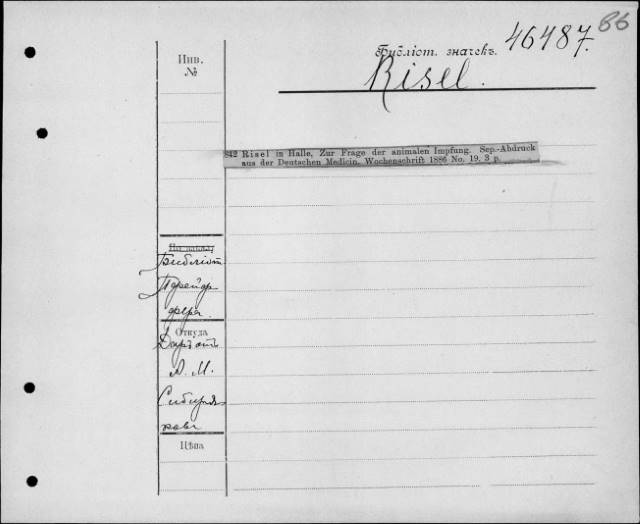 86
Инв.
№
Библіот. значекъ.
46487.
Risel.
842 Risel in Halle, Zur Frage der animalen Impfung. Sep.-Abdruck
aus der Deutschen Medicin. Wochenschrift 1886 No. 19. 3 p.
Библіот
Прейер
фера.
Откуда
Даръ отъ
А. М.
Сибиря
кова
Цѣна